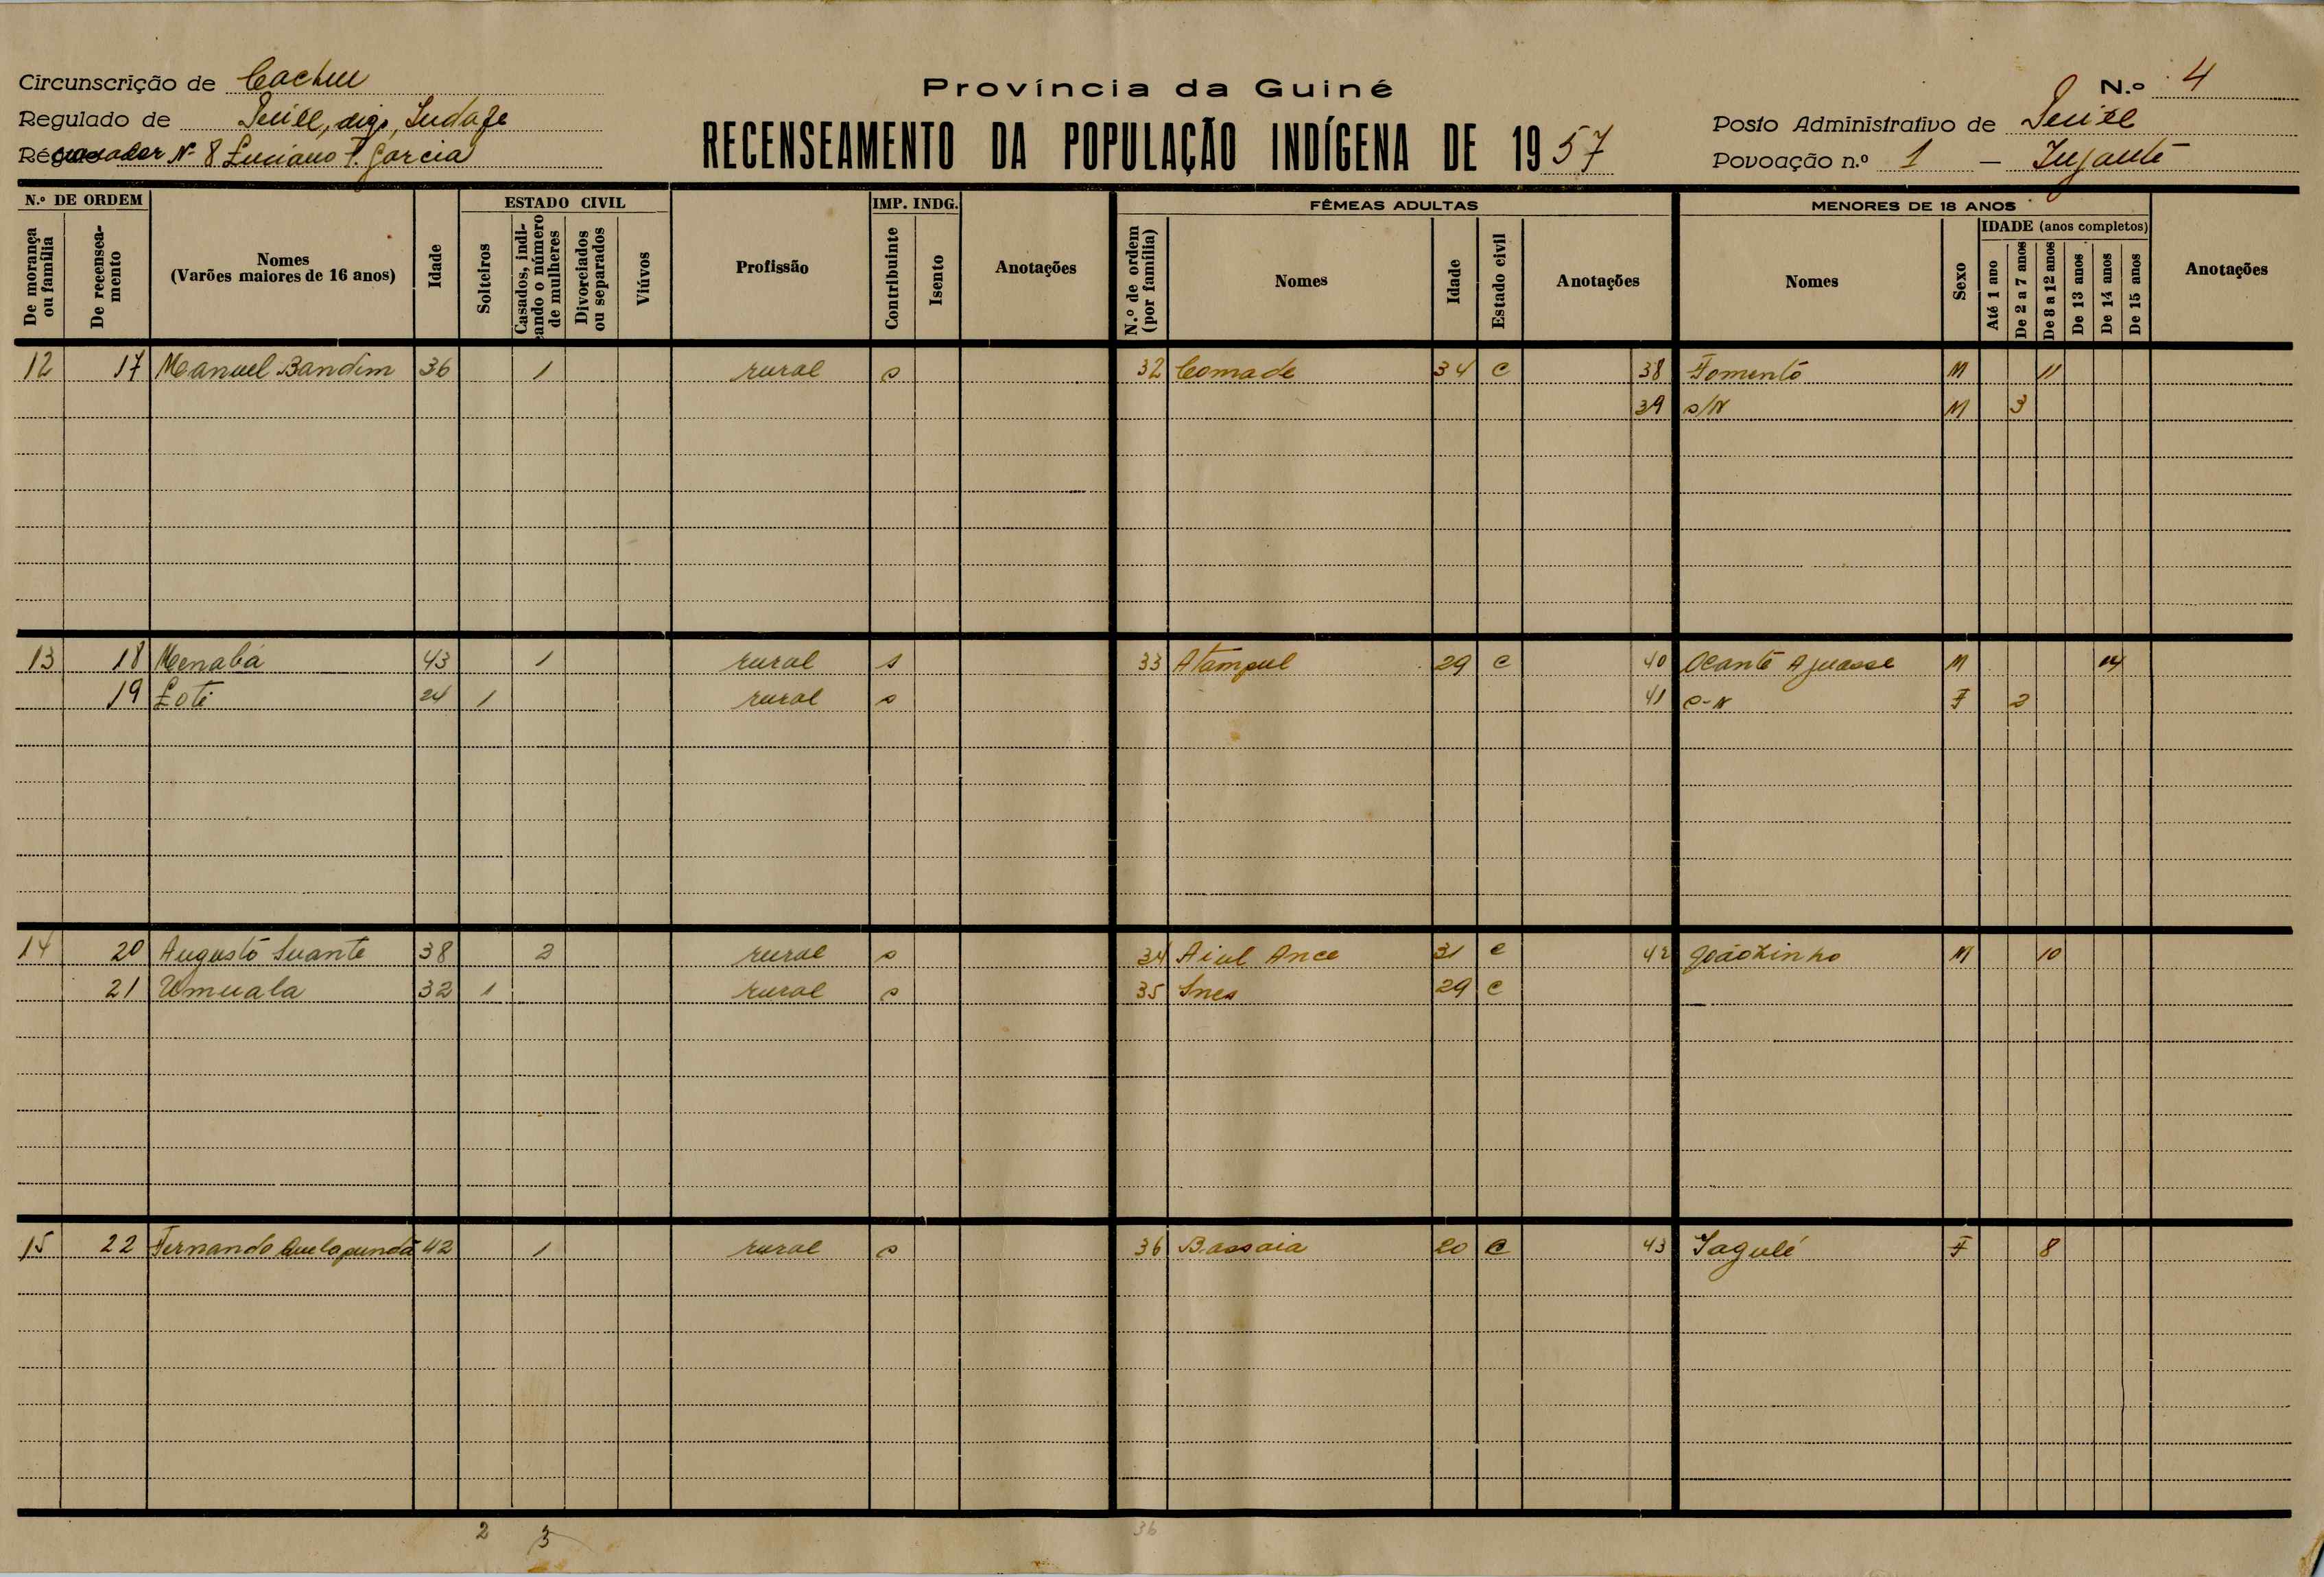 Circunscrição de Cacheu
Província da Guiné
N.º 4
Regulado de digo,
RECENSEAMENTO DA POPULAÇÃO INDÍGENA DE 1957
Posto Administrativo de
Ré N.º 8 Luciano F. Garcia
Povoação n.º 1 –
N.º DE ORDEM
De morança ou família
De recenseamento
Nomes
(Varões maiores de 16 anos)
Idade
ESTADO CIVIL
Solteiros
Casados, indicando o número de mulheres
Divorciados ou separados
Viúvos
Profissão
IMP. INDG.
Contribuinte
Isento
Anotações
FÊMEAS ADULTAS
N.º de ordem (por família)
Nomes
Idade
Estado civil
Anotações
MENORES DE 18 ANOS
Nomes
Sexo
IDADE (anos completos)
Até 1 ano
De 2 a 7 anos
De 8 a 12 anos
De 13 anos
De 14 anos
De 15 anos
Anotações
12 17 Manuel Bandim 36 1 rural s 32 Comade 34 C 38 Fomentó M 11
39 s/N M 3
13 18 Menabá 43 1 rural s 33 Atampul 29 C 40 Ocante M 14
19 Loti 24 1 rural s 41 S-N F 2
14 20 Augusto Suante 38 2 rural s 34 Aiul Ance 31 C 42 Joãozinho M 10
21 Umuala 32 1 rural s 35 Ines 29 C
15 22 Fernando 42 1 rural s 36 Bassaia 20 C 43 Jagulé F 8
2 3 36